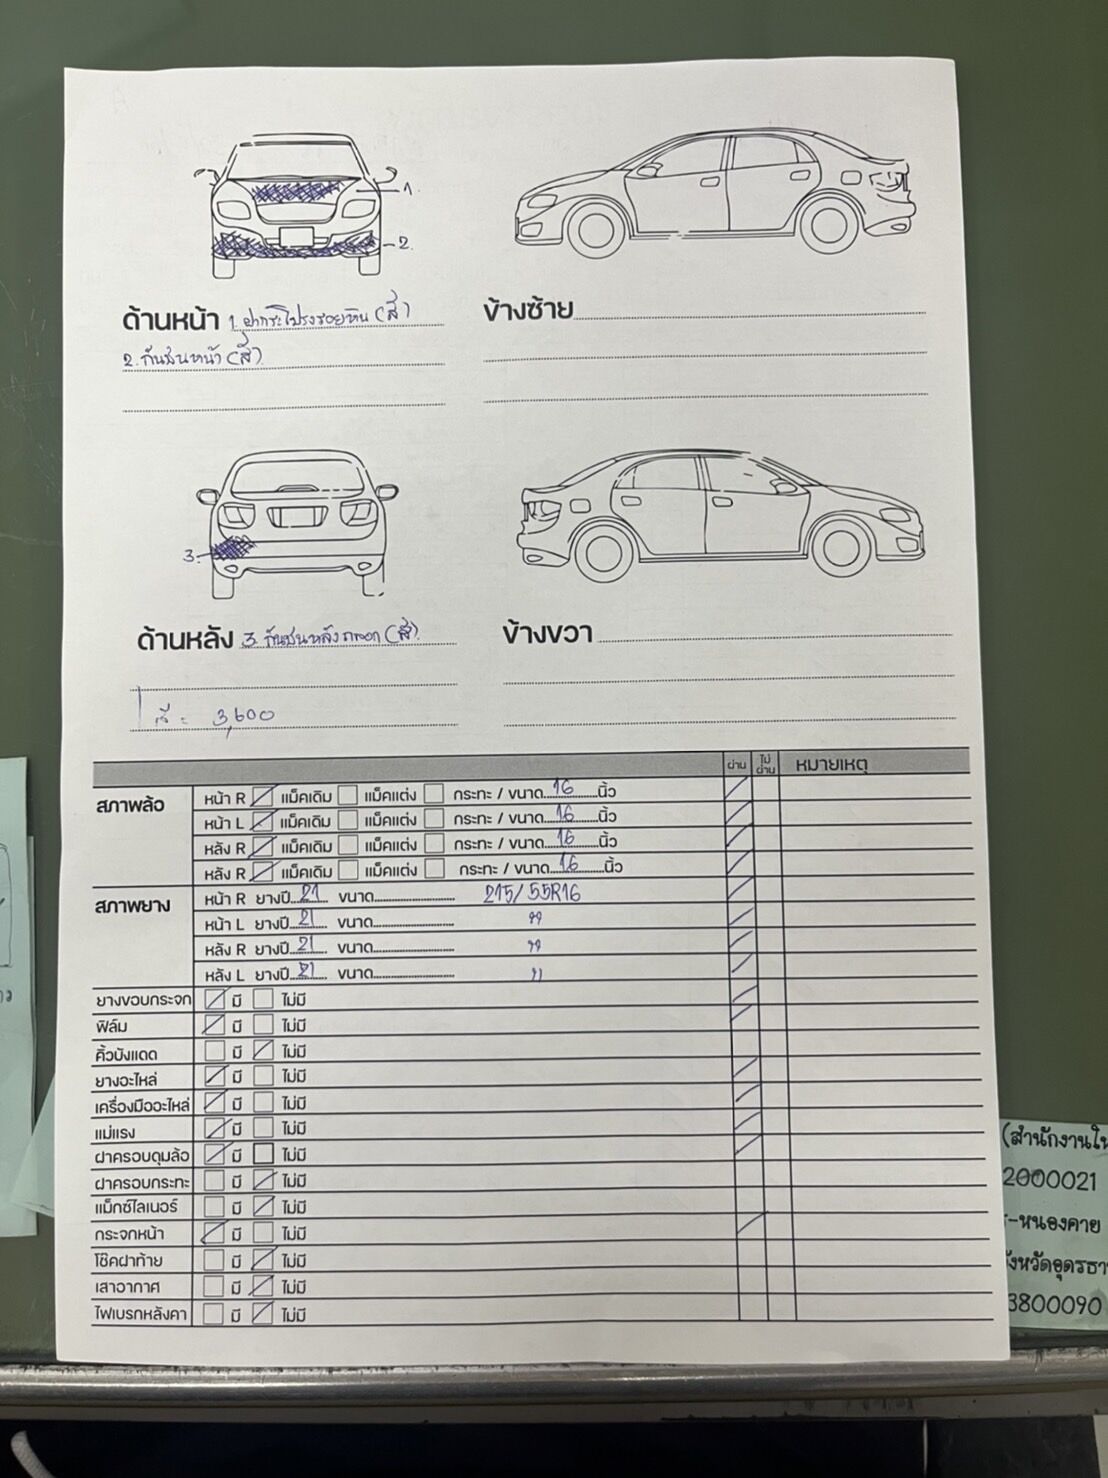 1.
2.
ด้านหน้า 1. ฝากระโปรงรอยหิน (สี)
2. กันชนหน้า (สี)
ข้างซ้าย
3.
ด้านหลัง 3. กันชนหลังถลอก (สี)
ข้างขวา
สี = 3,600
ผ่าน ไม่ผ่าน หมายเหตุ
สภาพล้อ หน้า R แม็คเดิม แม็คแต่ง กระทะ / ขนาด 16 นิ้ว
หน้า L แม็คเดิม แม็คแต่ง กระทะ / ขนาด 16 นิ้ว
หลัง R แม็คเดิม แม็คแต่ง กระทะ / ขนาด 16 นิ้ว
หลัง R แม็คเดิม แม็คแต่ง กระทะ / ขนาด 16 นิ้ว
สภาพยาง หน้า R ยางปี 21 ขนาด 215/55R16
หน้า L ยางปี 21 ขนาด "
หลัง R ยางปี 21 ขนาด "
หลัง L ยางปี 21 ขนาด "
ยางขอบกระจก มี ไม่มี
ฟิล์ม มี ไม่มี
คิ้วบังแดด มี ไม่มี
ยางอะไหล่ มี ไม่มี
เครื่องมืออะไหล่ มี ไม่มี
แม่แรง มี ไม่มี
ฝาครอบดุมล้อ มี ไม่มี
ฝาครอบกระทะ มี ไม่มี
แม็กซ์ไลเนอร์ มี ไม่มี
กระจกหน้า มี ไม่มี
โช๊คฝาท้าย มี ไม่มี
เสาอากาศ มี ไม่มี
ไฟเบรกหลังคา มี ไม่มี
(สำนักงานให
2000021
-หนองคาย
ังหวัดอุดรธา
3800090